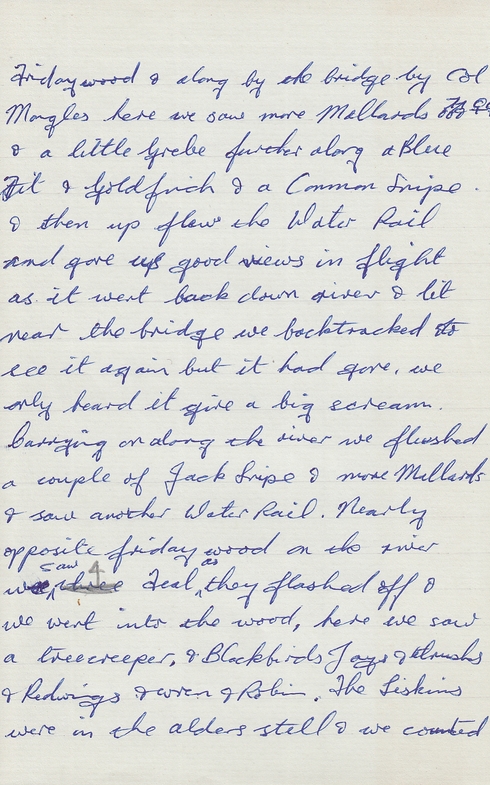 Fridaywood & along by the bridge by Col
Mongles here we saw more Mallards
& a little Grebe further along a Blue
Tit & Goldfinch & a Common Snipe.
& then up flew the Water Rail
and gave us good views in flight
as it went back down river & lit
near the bridge we backtracked to
see it again but it had gone, we
only heard it give a big scream.
Carrying on along the river we flushed
a couple of Jack Snipe & more Mallards
& saw another Water Rail. Nearly
opposite friday wood on the river
we saw 4 Teal, as they flashed off &
we went into the wood, here we saw
a treecreeper, & Blackbirds Jays & thrushs
& Redwings & wren & Robin. The Siskins
were in the alders still & we counted